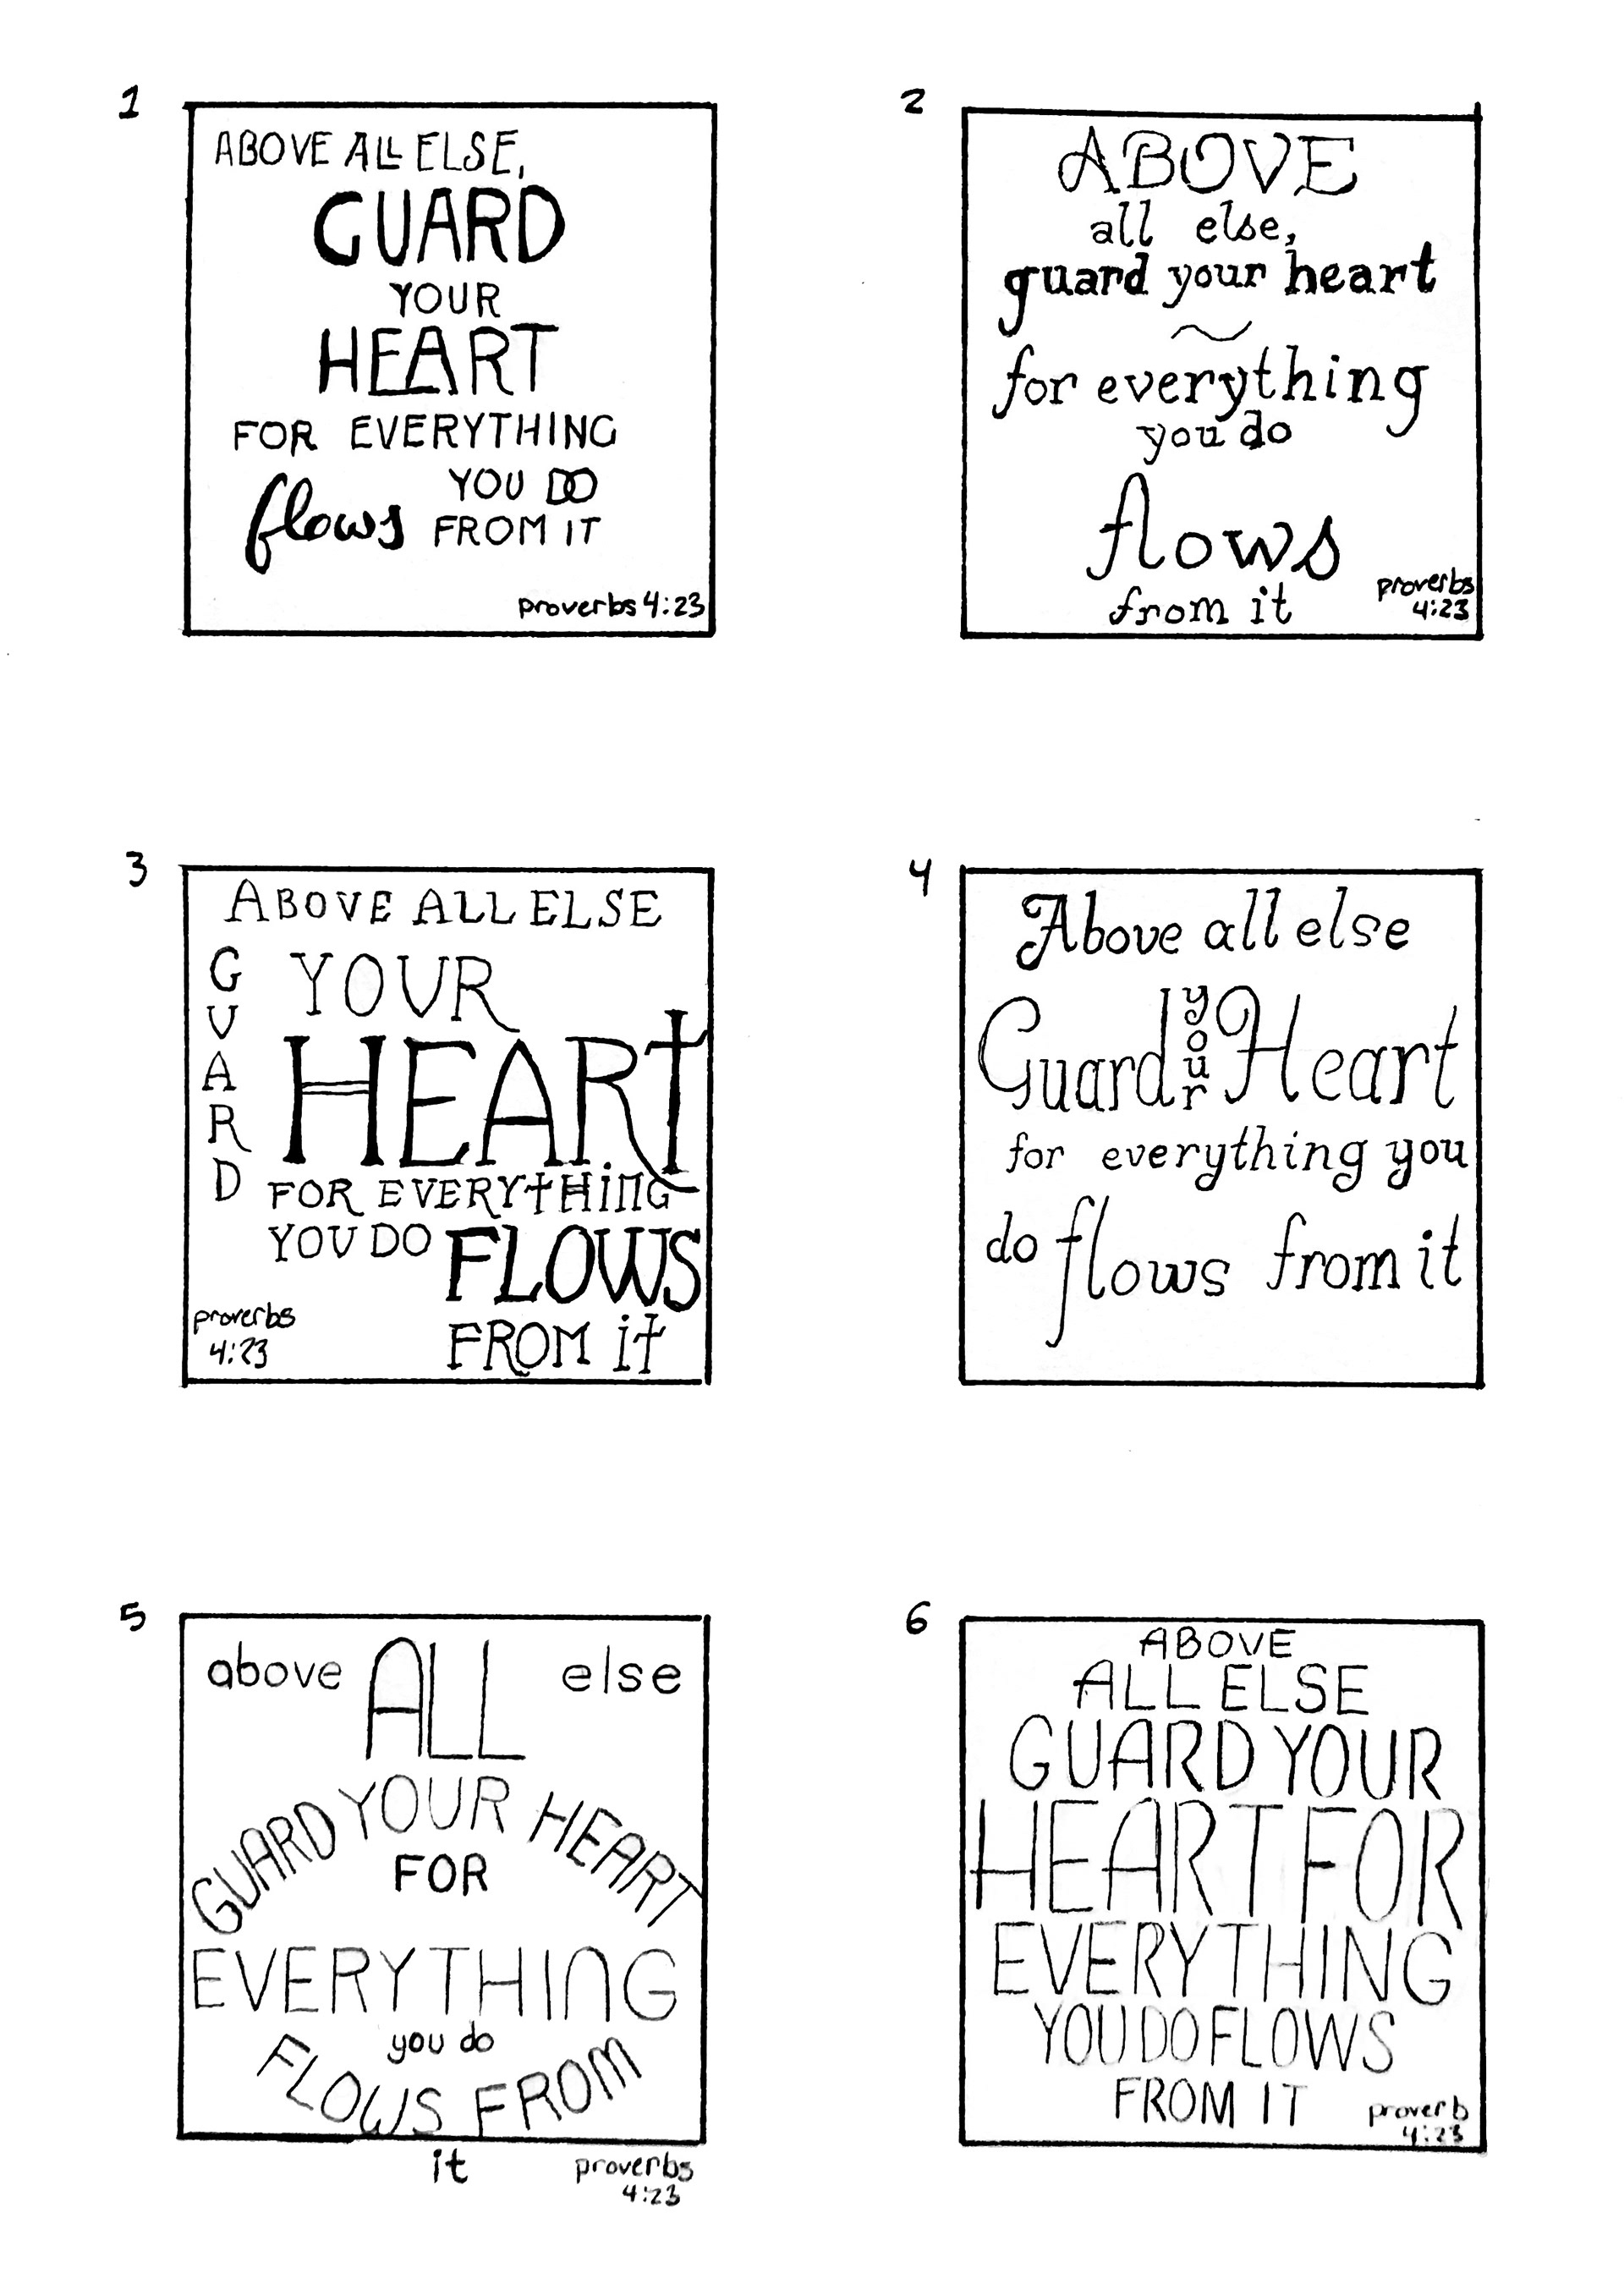 1
ABOVE ALL ELSE,
GUARD
YOUR
HEART
FOR EVERYTHING
YOU DO
flows FROM IT
proverbs 4:23
2
ABOVE
all else,
guard your heart
for everything
you do
flows
from it
proverbs
4:23
3
ABOVE ALL ELSE
GUARD
YOUR
HEART
FOR EVERYTHING
YOU DO FLOWS
FROM it
proverbs
4:23
4
Above all else
Guard your Heart
for everything you
do flows from it
5
above ALL else
GUARD YOUR HEART
FOR
EVERYTHING
you do
FLOWS FROM
it
proverbs
4:23
6
ABOVE
ALL ELSE
GUARD YOUR
HEART FOR
EVERYTHING
YOU DO FLOWS
FROM IT
proverb
4:23